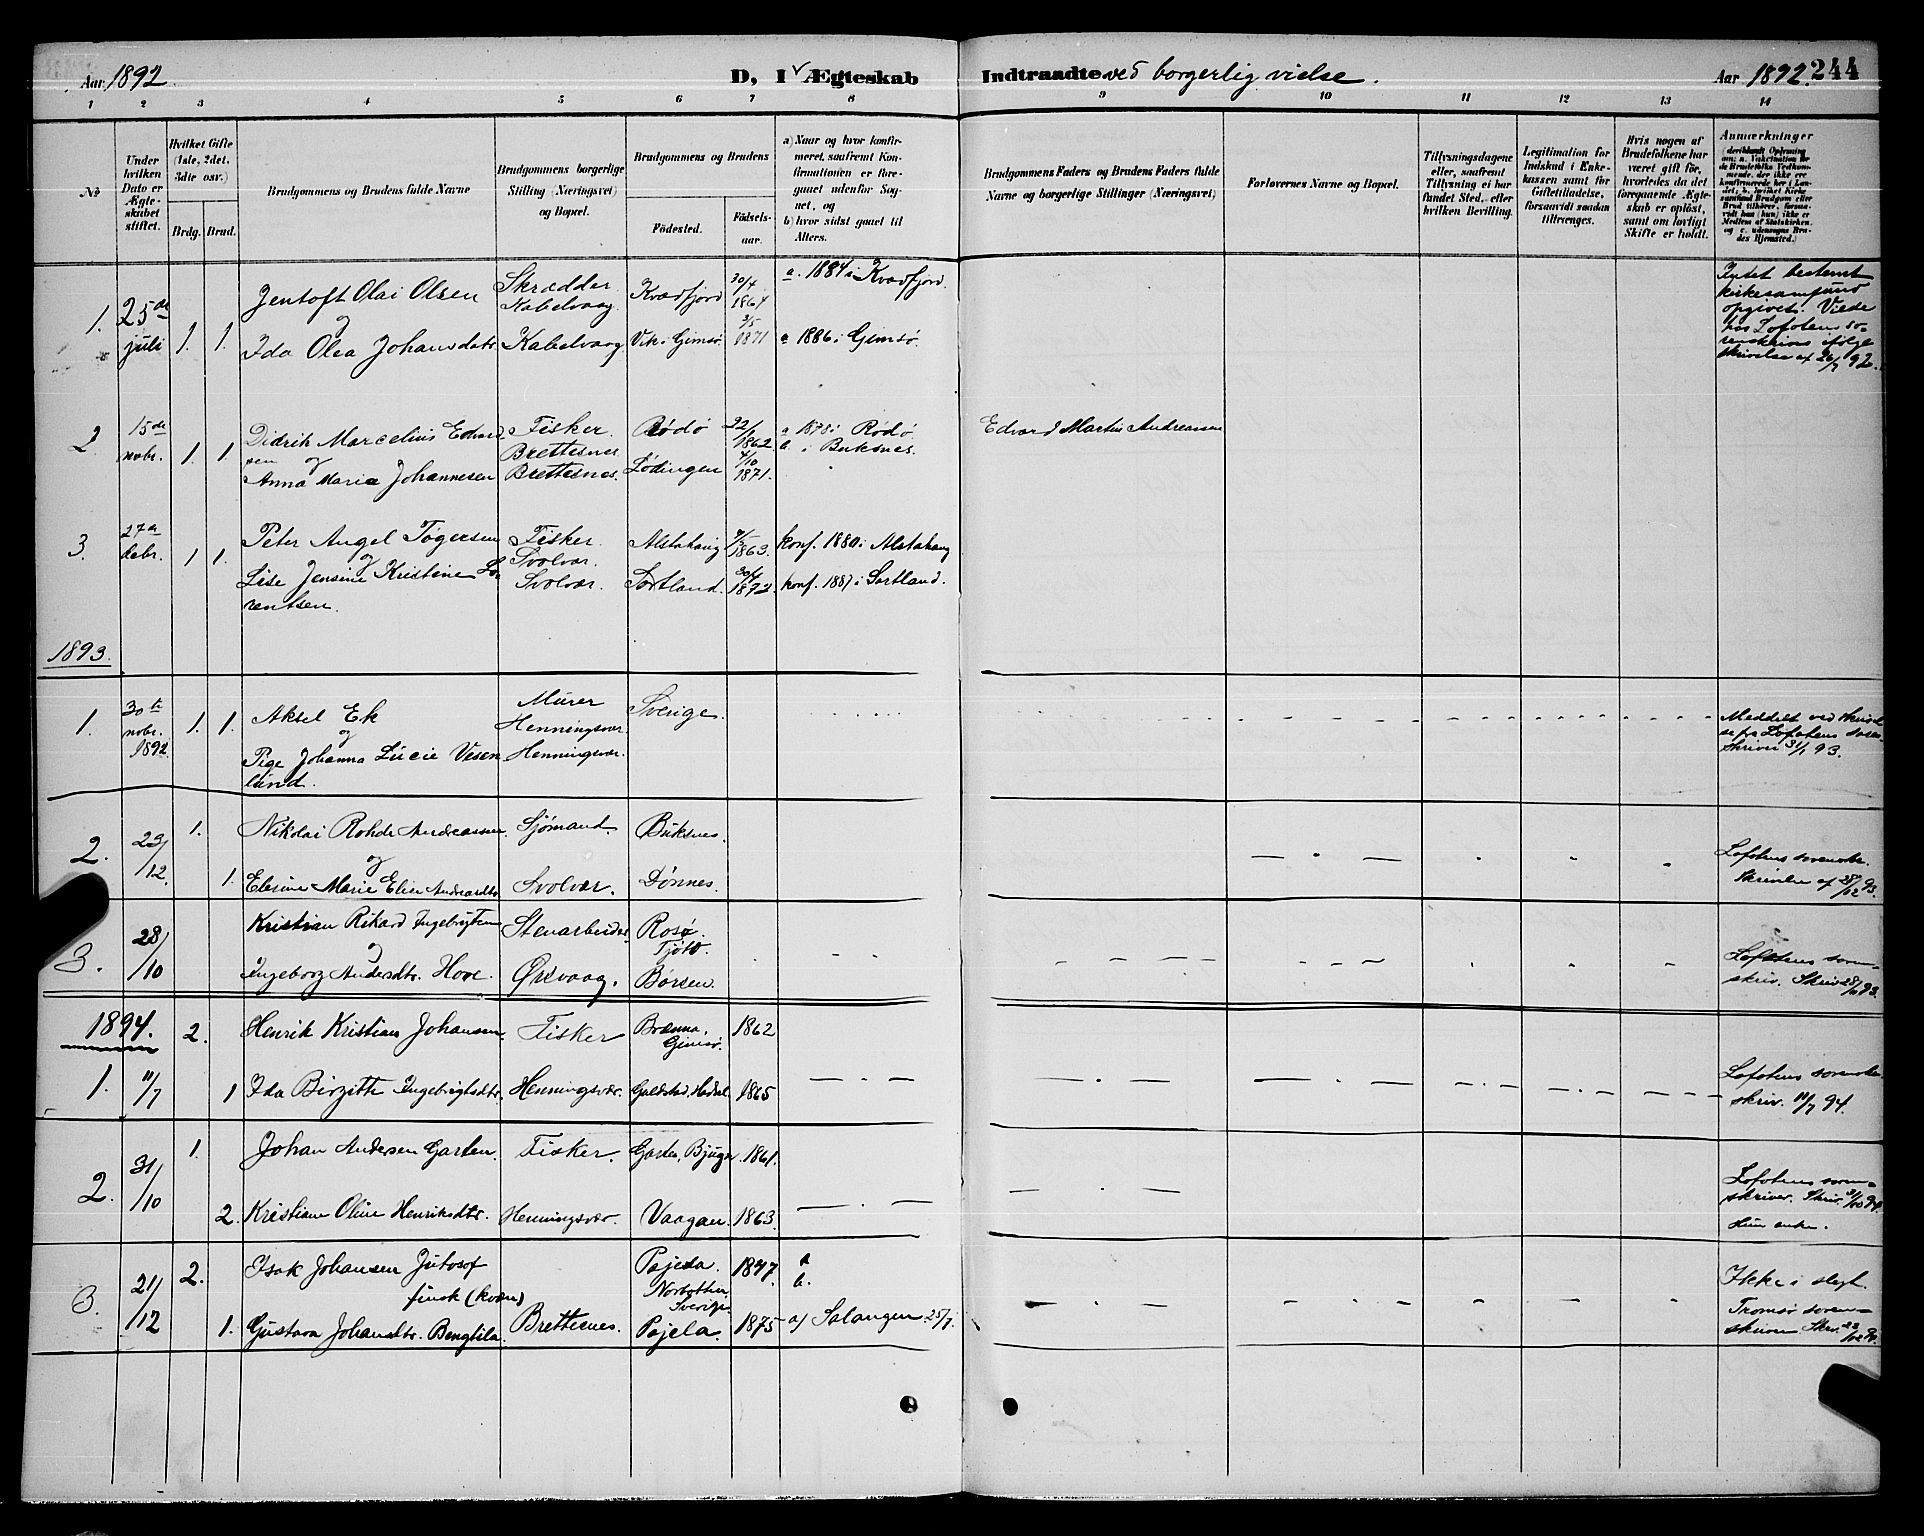 Aar 1892
D, I Ægteskab
Indtraadte ved borgerlig vielse.
Aar 1892. 244
1 2 3 4 5 6 7 8 9 10 11 12 13 14
No
Under hvilken Dato er Ægteskabet stiftet.
Hvilket Gifte (1ste, 2det, 3die osv.)
Brdg. Brud.
Brudgommens og Brudens fulde Navne
Brudgommens borgerlige Stilling (Næringsvei) og Bopæl.
Brudgommens og Brudens
Fødested.
Fødselsaar.
a) Naar og hvor konfirmeret, saafremt Konfirmationen er foregaaet udenfor Sognet, og
b) hvor sidst gaaet til Alters.
Brudgommens Faders og Brudens Faders fulde Navne og borgerlige Stillinger (Næringsvei)
Forlovernes Navne og Bopæl.
Tillysningsdagene eller, saafremt Tillysning ei har fundet Sted, efter hvilken Bevilling.
Legitimation for Indskud i Enkekassen samt for Giftetilladelse, forsaavidt saadan tiltrænges.
Hvis nogen af Brudefolkene har været gift før, hvorledes da det foregaaende Ægteskab er opløst, samt om lovligt Skifte er holdt.
Anmærkninger
1. 25de juli 1. 1.
Jentoft Olai Olsen Skrædder Kabelvaag Kvædfjord 30/4 1864 a. 1884 i Kvædfjord.
og
Ida Olea Johansdatr. Kabelvaag Vik i Gimsø. 3/5 1871 a 1886 i Gimsø.
Intet bestemt
kirkesamfund
opgivet. Viede
hos Lofotens so-
renskriver ifølge
skrivelse af 26/7 92.
2 15de nobr. 1. 1.
Didrik Marcelius Edvard Fisker. Rødø 22/1 1862 a 1878 i Rødø
sen og Brettesnes b. i Buksnes.
Anna Marie Johannesen Brettesnes. Lødingen 4/10 1871.
Edvard Martin Andreassen
3. 27de debr. 1 1.
Peter Angel Tøgersen Fisker. Alstahaug 7/5 1863. konf. 1880 i Alstahaug
og Svolvær.
Lise Jensine Kristine Lo- Svolvær. Sortland. 30/4 1872. konf. 1887 i Sortland.
rentsen.
1893.
1. 30te nobr. 1892 1. 1.
Aksel Ek Murer Sverige.
og Henningsvær
Pige Johanna Lucie Vesen Henningsvær.
lund.
Meddelt ved skrivel
se fra Lofotens soren-
skriver 3/1 93.
2. 23/12. 1.
Nikolai Rohde Andreassen. Sjømand. Buksnes.
og
1. Elerine Marie Elise Andreasdtr. Svolvær. Dønnes.
Lofotens sorenskr.
Skrivelse af 28/12 93.
3. 28/10
Kristian Rikard Ingebrigtsen Stenarbeider Rosø. Tjøtø
og
Ingeborg Andersdtr. Hove. Ørsvaag. Børsen.
Lofotens soren-
skriv. Skriv. 28/10 93.
1894. 2.
Henrik Kristian Johansen. Fisker Brænna. Gimsø. 1862
1. 11/7 1 Ida Birgitte Ingebrigtsdtr. Henningsvær. Guldstad. Hadsel. 1865
Lofotens sorensk.
skriv. 11/7 94.
2. 31/10 1.
Johan Andersen Garten. Fisker. Garten, Bjugn. 1861.
2. Kristiane Oline Henriksdtr. Henningsvær. Vaagan. 1863.
Lofotens soren-
skriver. Skriv. 31/10 94.
Hun enke.
3. 21/12 2.
Isak Johansen Jutosof Pajela. 1847. a
finsk (kvæn) Norbotten Sverige. b.
1. Gustava Johansdtr. Bengtila. Brettesnes. Pajela. 1875 a) Salangen 25/7.
Ikke i slegt.
Tromsø soren-
skriver. Skr. 22/12 94.